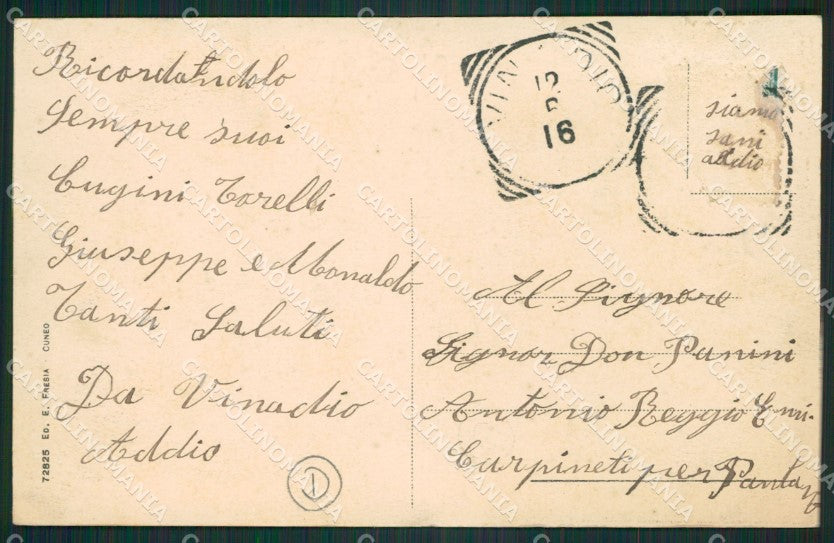 Ricordandolo
Sempre suoi
Cugini Torelli
Giuseppe e Monaldo
Tanti Saluti
Da Vinadio
Addio
72825 ED. E. FRESIA CUNEO
VINADIO
12
16
siamo
sani
addio
Al Signore
Signor Don Panini
Antonio Reggio Emi-
Carpineti per Panta
CARTOLINOMANIA